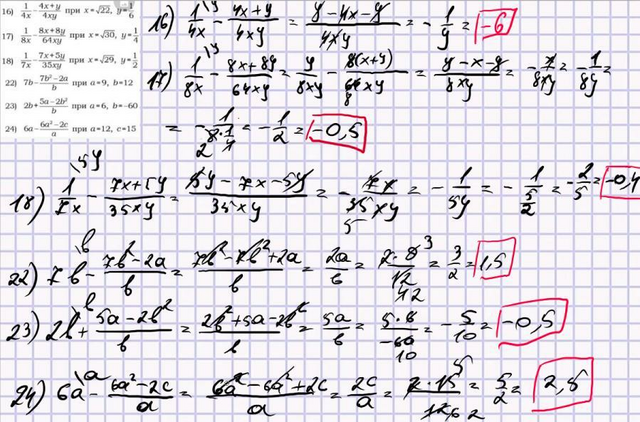 16) 1/4x - 4x+y/4xy при x=√22, y=1/6
17) 1/8x - 8x+8y/64xy при x=√30, y=1/
18) 1/7x - 7x+5y/35xy при x=√29, y=1/2
22) 7b - 7b²-2a/b при a=9, b=12
23) 2b + 5a-2b²/b при a=6, b=-60
24) 6a - 6a²-2c/a при a=12, c=15
16) 1\y/4x - 4x+y/4xy = y-4x-y/4xy = -1/y = -6
17) 1\y/8x - 8x+8y/64xy = y/8xy - 8(x+y)/64xy 8 = y-x-y/8xy = -x/8xy = -1/8y =
= -1/8·1/4 2 = -1/2 = -0,5
18) 1\5y/7x - 7x+5y/35xy = 5y-7x-5y/35xy = -7x/35xy 5 = -1/5y = -1/5/2 = -2/5 = -0,4
22) 7b\b - 7b²-2a/b = 7b²-7b²+2a/b = 2a/b = 2·9 3/12 42 = 3/2 = 1,5
23) 2b\b + 5a-2b²/b = 2b²+5a-2b²/b = 5a/b = 5·6/-60 10 = -5/10 = -0,5
24) 6a\a - 6a²-2c/a = 6a²-6a²+2c/a = 2c/a = 2·15 5/12 6 2 = 5/2 = 2,5